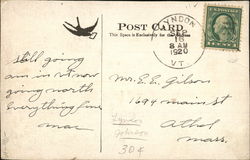 POST CARD
This Space is Exclusively for the Address
LYNDON
16
8 AM
1920
VT.
still going
am in
now
going north
everything fine
mac
Mr. E. E. Gilson
1694 main st
Athol
Mass.
Lyndon
30¢